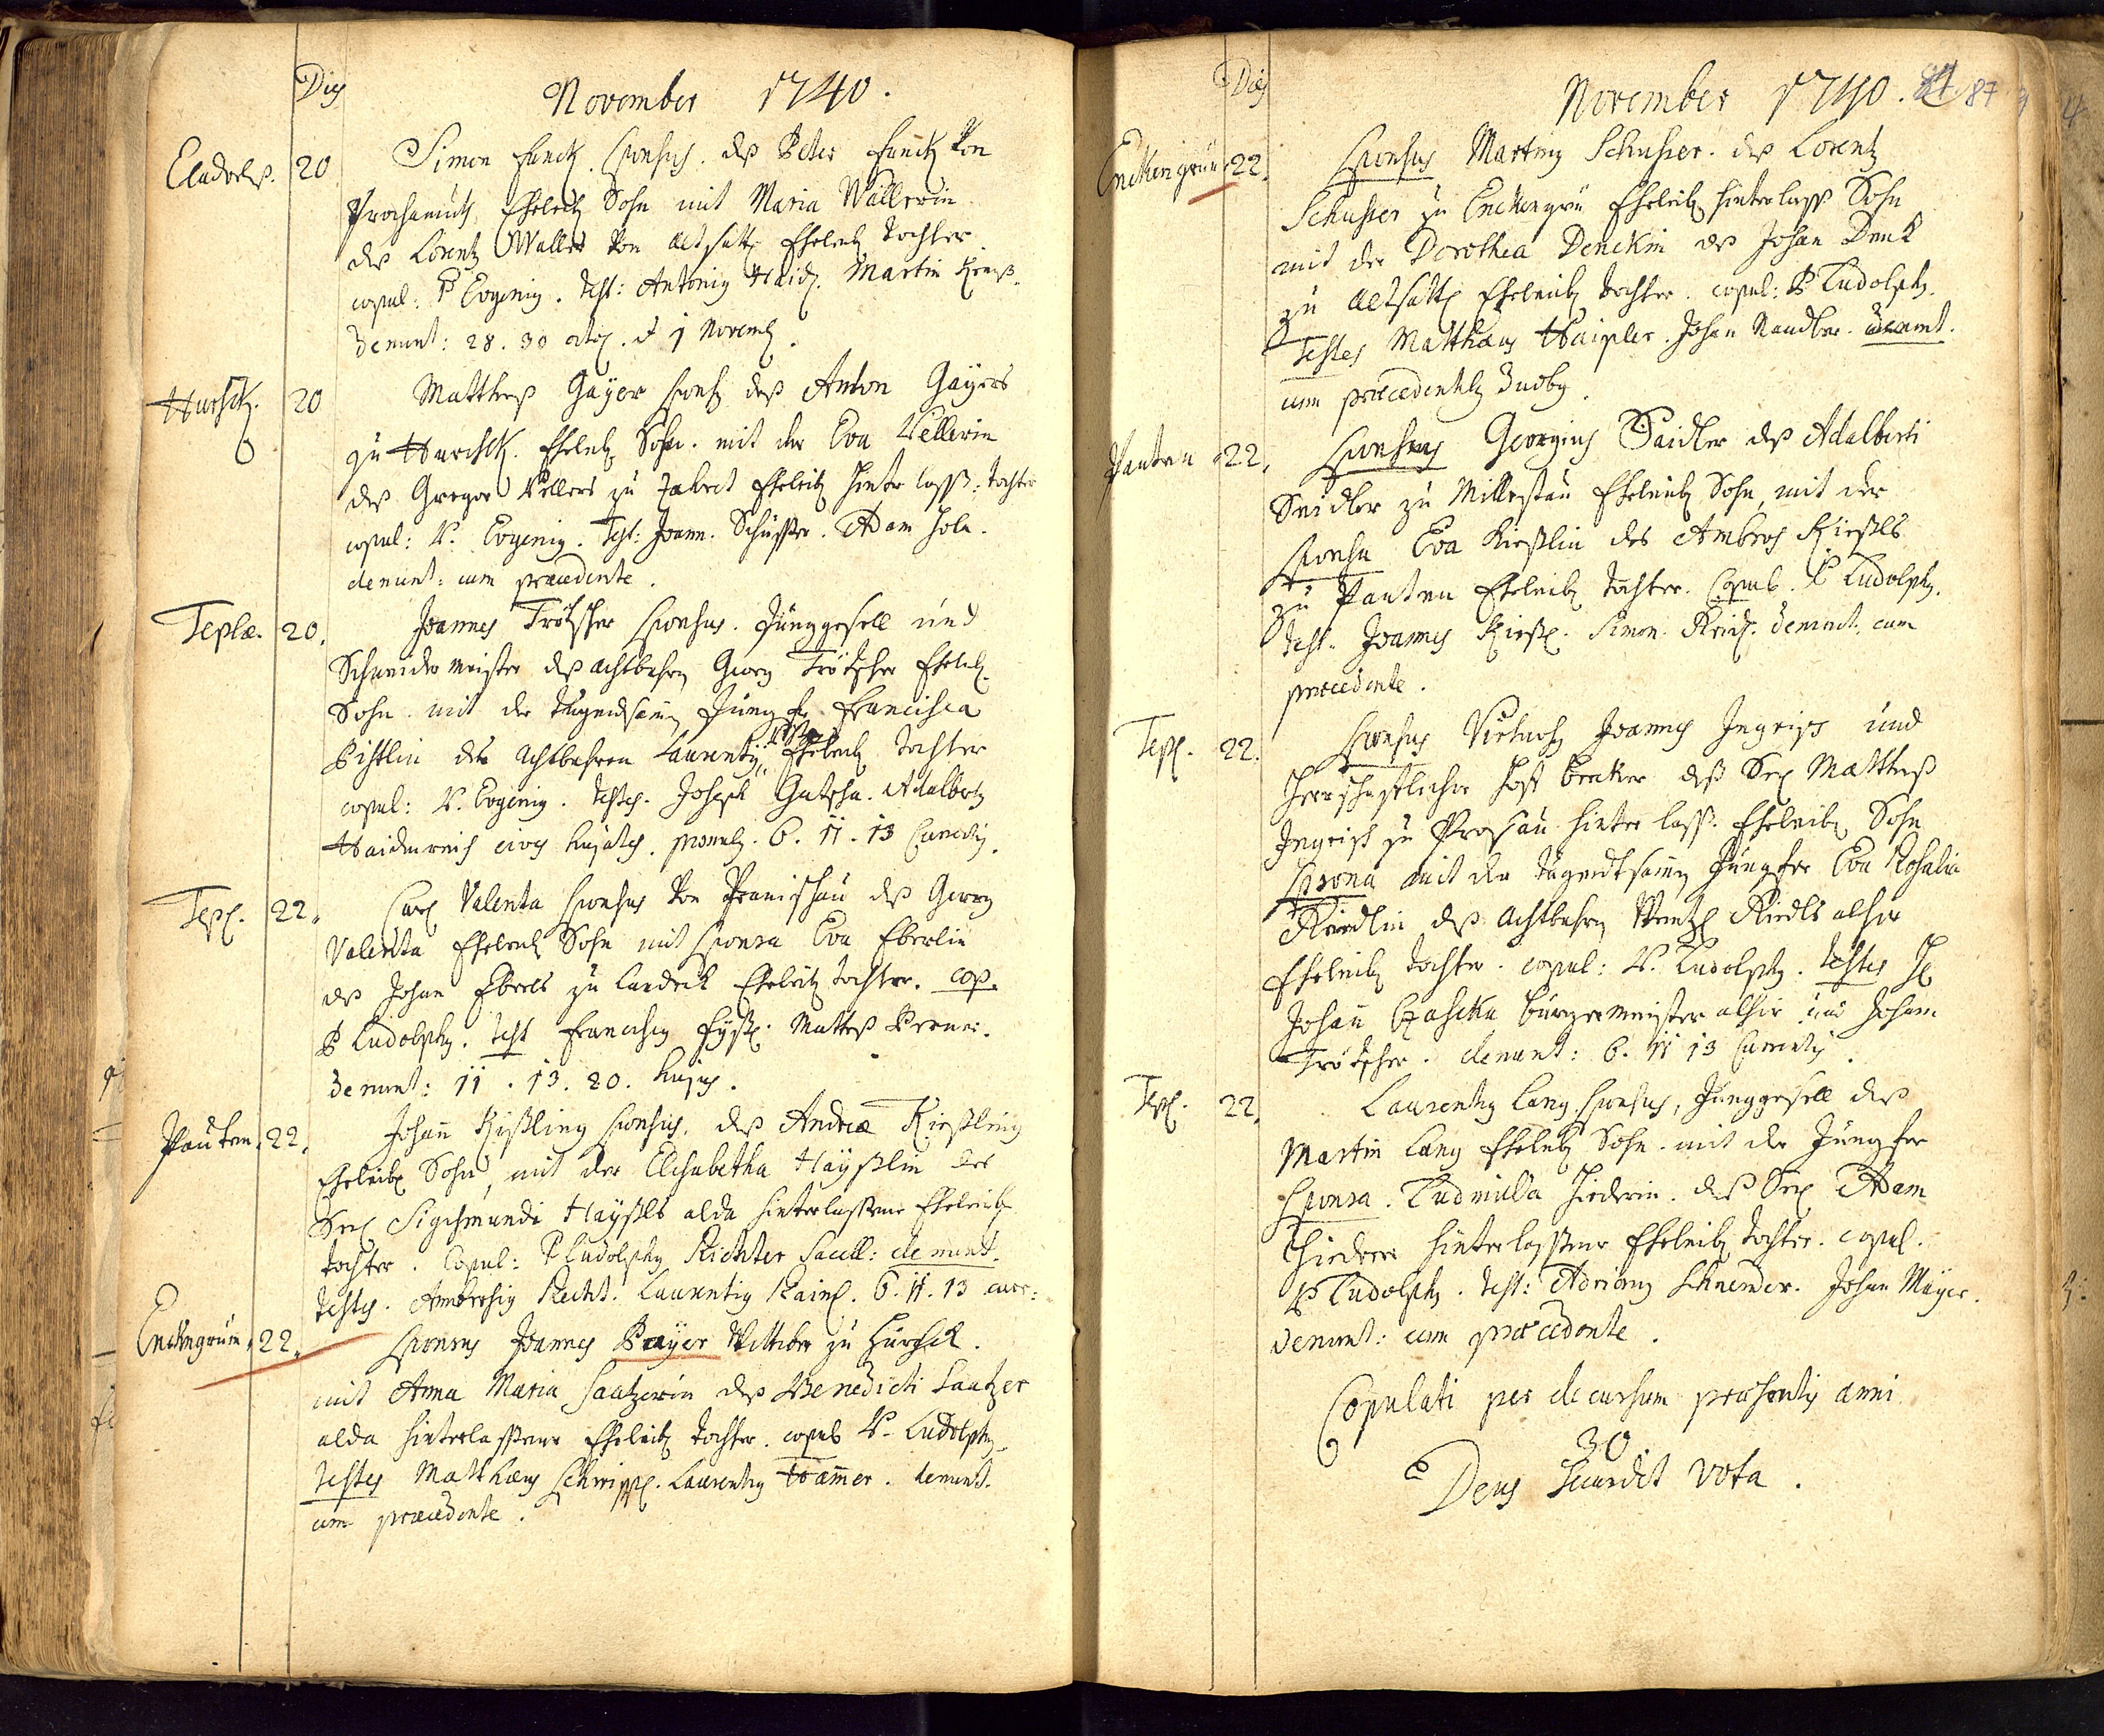 Dies
November 1740.
20 Simon Funck Sponsus. deß Peter Funck von
Prochamuth, Ehelich Sohn mit Maria Wallerin
deß Lorentz Waller von Altsattl Ehelich Tochter.
copul: P Evgenig. Test: Antonig Haidl. Martin
Denunt: 28. 30 8tbr. et 1 Novemb.
Hurschk. 20 Mattheß Gayer spons deß Anton Gayers
zu Hurschk. Ehelich Sohn. mit der Eva Vellerin
deß Gregor Vellers zu Jahret Ehelich hinterlass: Tochter
copul: P. Evgenig. Test: Joann. Schusster. Adam Hole.
denunt: cum præcedente.
Teplæ. 20. Joannes Trötscher Sponsus. Junggesell und
Schneider Meister deß achtbahrn Georg Trötscher Ehelich.
Sohn. mit der tugendsamen Jungfr. Francisca
Pistlin des achtbahren Laurentij Ehelich Tochter
copul: P. Evgenig. Testes. Joseph Gutscha. Adalberty
Haidenreich cives hujates. promulg. 6. 11. 13 Currentis.
Tepl. 22. Carl Valenta Sponsus von Pramischau deß Georg
Valenta Ehelich Sohn mit Sponsa Eva Eberlin
deß Johan Eberls zu Landeck Ehelich Tochter. cop.
P Ludolphy. Test Franciscg Matteß Perner.
Denunt: 11. 13. 20. hujus.
Pauten. 22. Johann Kißling Sponsus. deß Andreæ Kießling
Eheleibl Sohn, mit der Elisabetha Haÿßlin des
Seel Sigismundi Haÿßls alda hinterlassene Eheleibl
Tochter. Copul: P Ludolphy Richter Sacell: denunt.
Testes. Ambrosig Recht. Laurentig Raiml. 6. 11. 13 curr:
Enckengrün. 22. Sponsus Joannes Bayer Wittiber zu Hurschk.
mit Anna Maria Saatzerin deß Benedicti Saatzer
alda hinterlassene Eheleibl Tochter. copul P. Ludolphy.
Testes Matthæus Schripfl. Laurentig Hammer. denunt.
cum præcedente.
Dies
November 1740. 87
Enckengrün 22. Sponsus Martinus Schuster. deß Lorentz
Schuster zu Enckengrü Eheleibl hinterlass Sohn
mit der Dorothea Denckin deß Johan Denck
zu Altsattl Eheleibl Tochter. copul: P Ludolphy.
Testes Matthæus Haipler. Johan Nandler. denunt.
cum præcedentibus duobus.
Pauten 22. Sponsus Georgius Saidler deß Adalberti
Seidler zu Millestau Eheleibl Sohn, mit der
Sponsa Eva Kießlin des Ambros Kießls
zu Pauten Eheleibl Tochter. Copul. P Ludolphy.
Test. Joannes Kießl. Simon Reidl. denunt. cum
præcedente.
Tepl. 22. Sponsus Virtuos Joannes Ingriss und
Herrschaftlicher Hoff Becker deß Seel Mattheß
Ingriss zu Prosau hinterlass. Eheleibl Sohn
Sponsa mit der tugendtsamen Jungfer Eva Rosalia
Riedlin deß achtbahrn Wentzl Riedls alhier
Eheleibl Tochter. copul: P. Ludolphy. Testes H
Johann Czaschka Burgermeister alhir und Johann
Trötscher. denunt: 6. 11 13 Currentis.
Tepl. 22. Laurentig Lang Sponsus, Junggesell deß
Martin Lang Ehelich Sohn. mit der Jungfer
Sponsa. Ludmilla Hiederin. deß Seel Adam
Hieders hinterlassene Eheleibl Tochter. copul.
P Ludolphy. Test: Adriang Schneider. Johan Mayer.
Denunt: cum præcedente.
Copulati per decursum præsentis anni
30
Deus secundet vota.